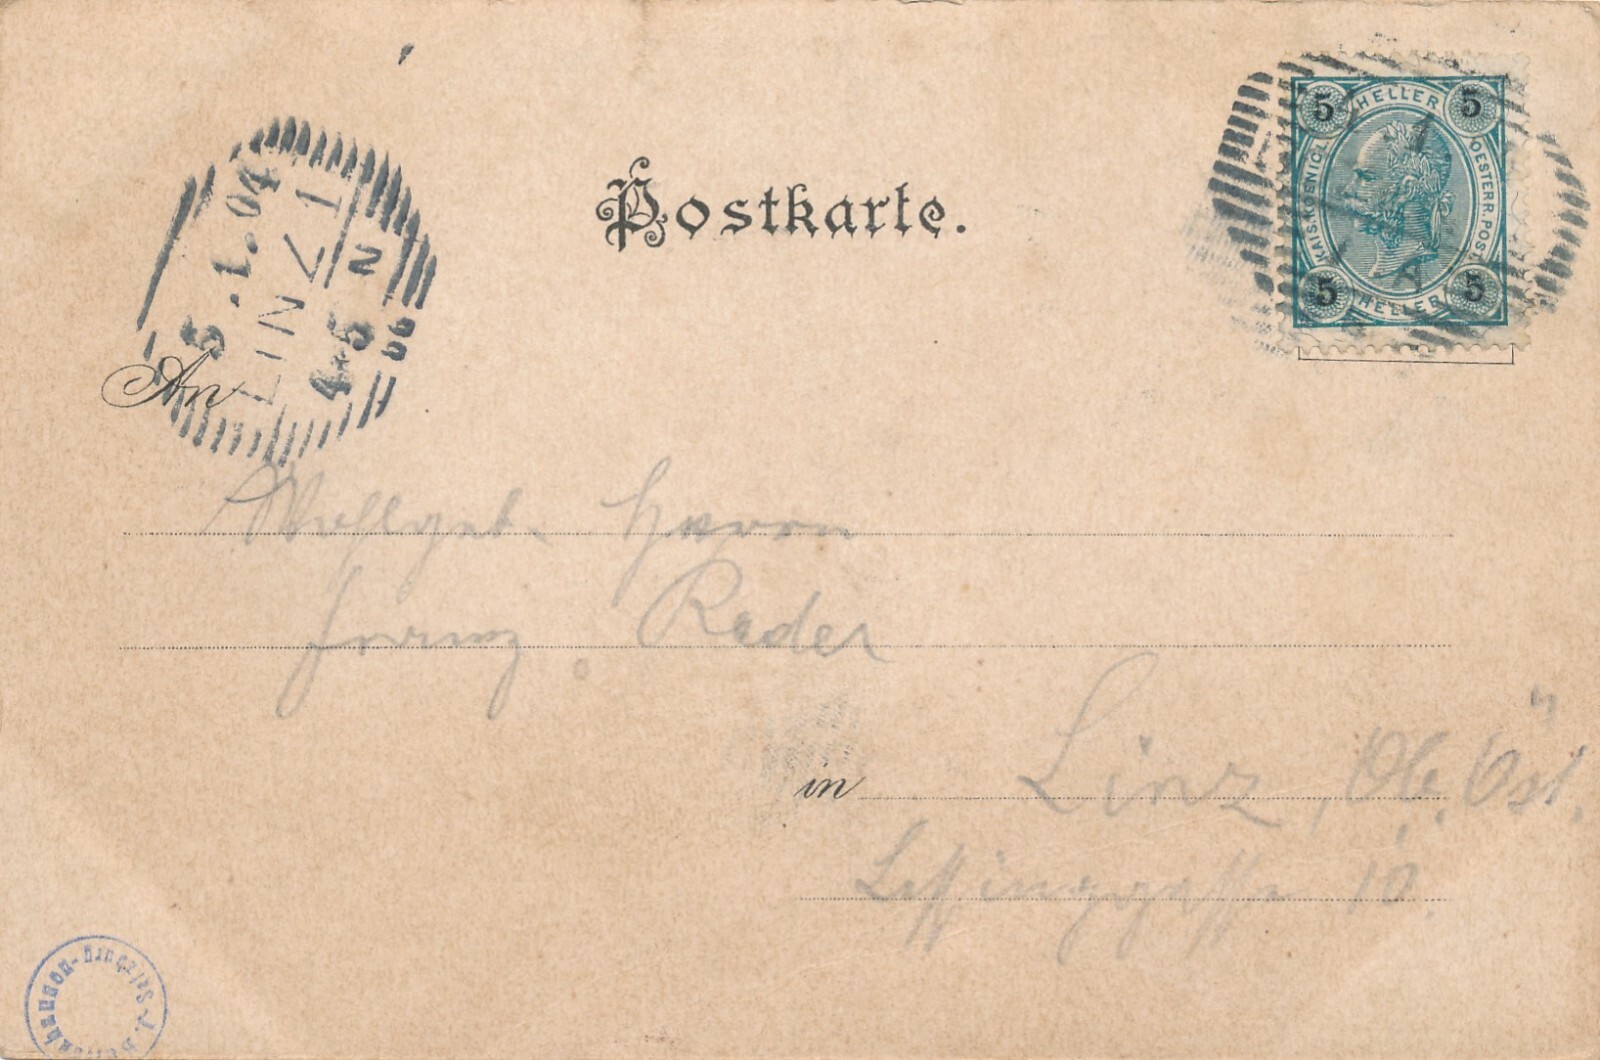 Postkarte.
5 HELLER 5
KAIS. KOENIGL. OESTERR. POST.
5 HELLER 5
5.1.04
LINZ 1
4-5 N
An
Wohlgeb. Herrn
Franz Rader
in Linz, Ob. Öst.
Lessinggasse 10.